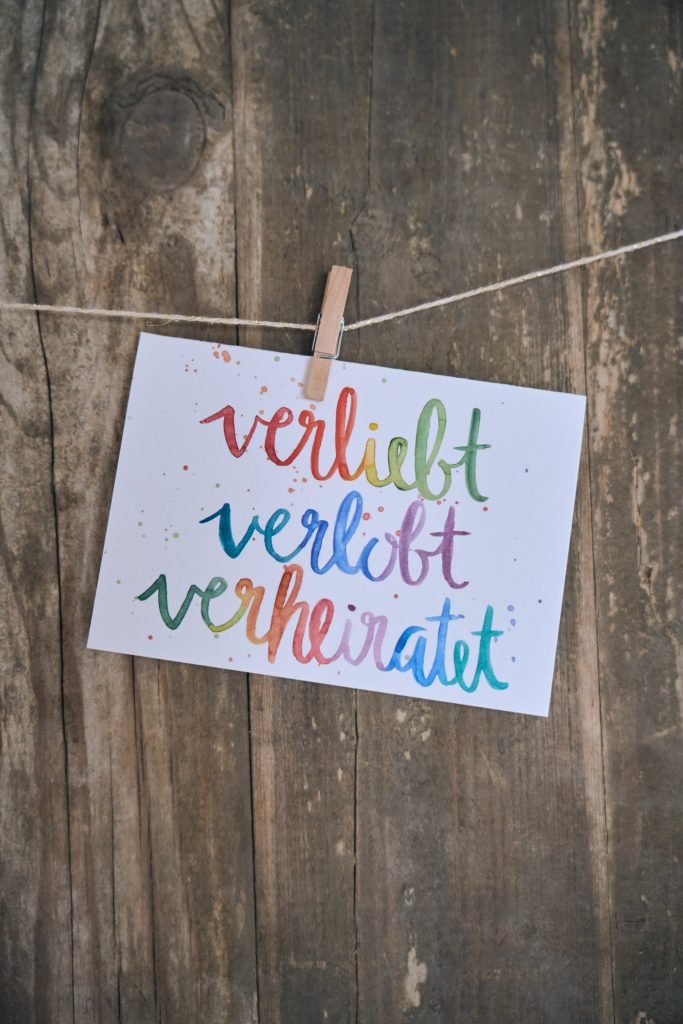 verliebt
verlobt
verheiratet